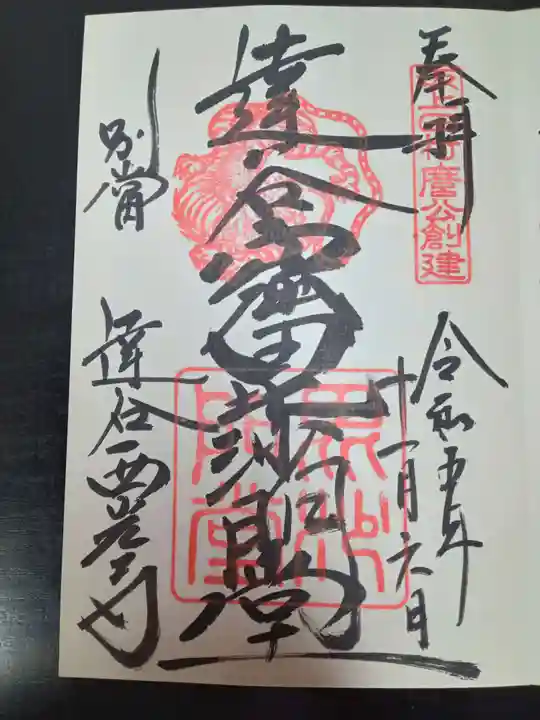 奉拝
坂上田村麿公創建
令和五年
十一月六日
達谷窟毘沙門堂
毘沙門堂
別當
達谷西光寺